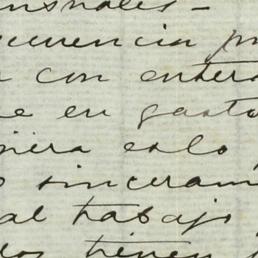 ensuales -
cuencia pr
a con entera
e en gasto
era esto
sinceram
al trabajo
dos tienen